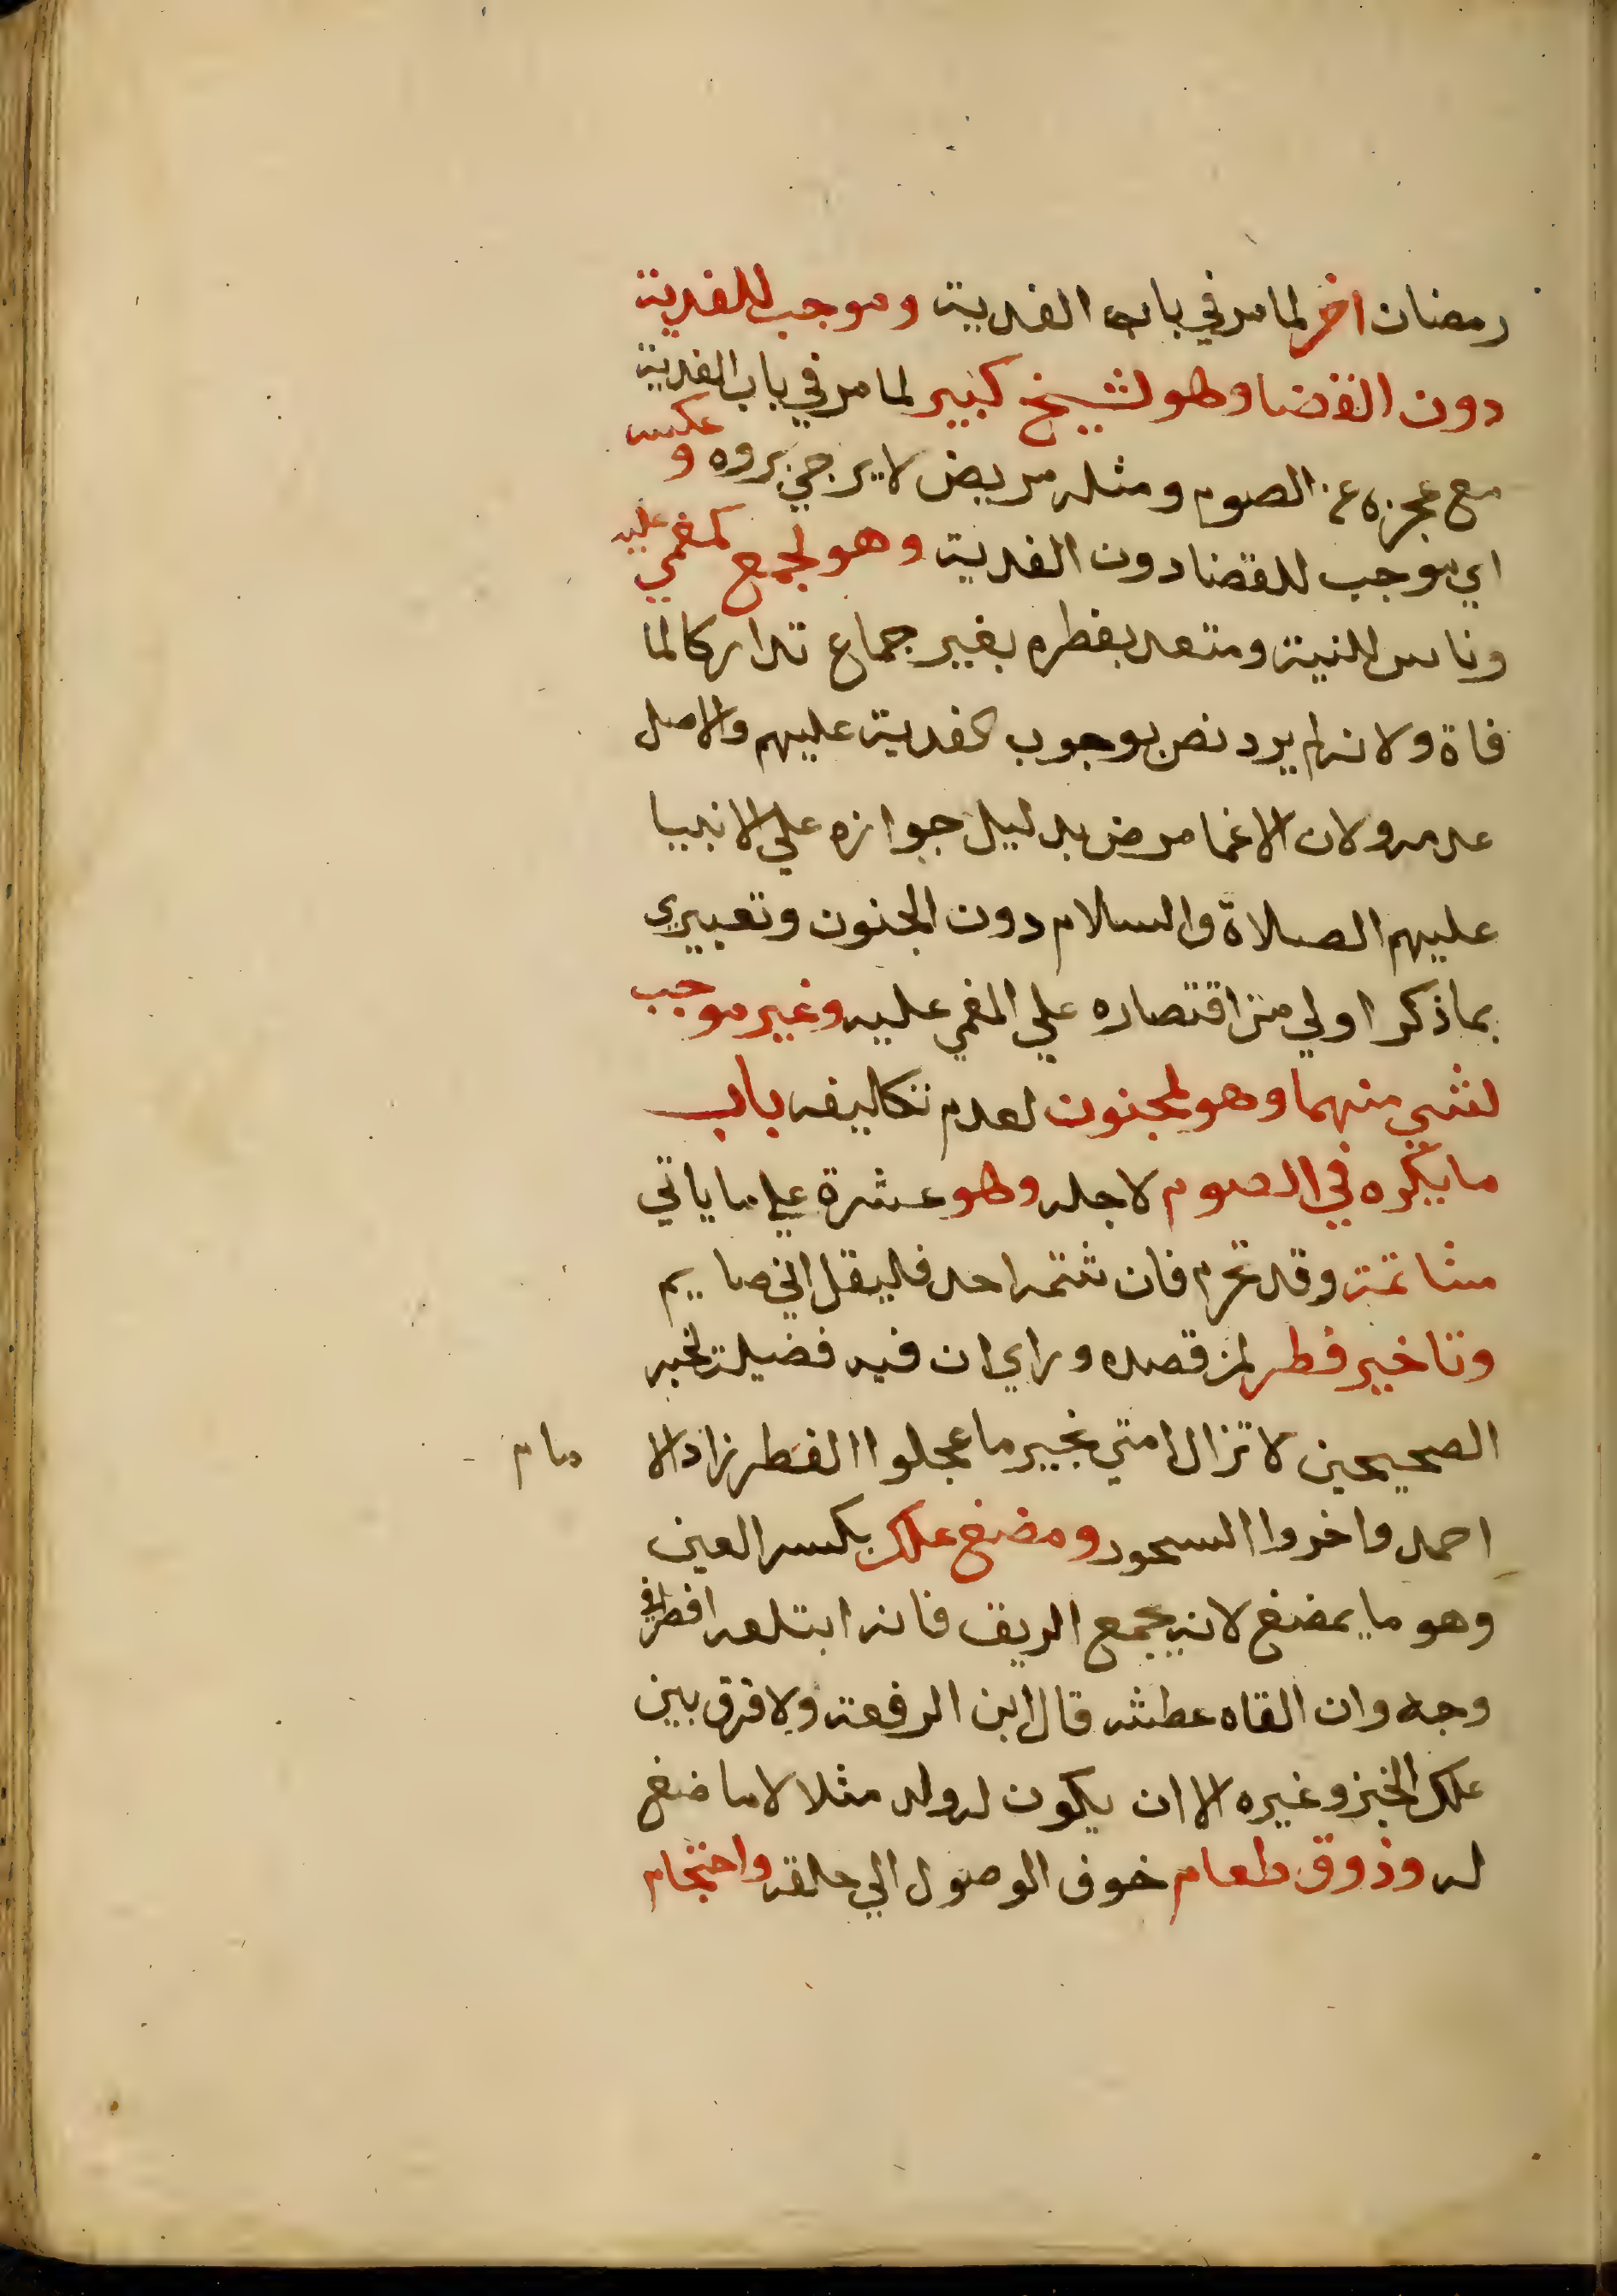 رمضان اخر لما مر في باب الفدية وموجب للفدية
دون القضا وهو لشيخ كبير لما مر في باب الفدية
مع عجزه عن الصوم ومثله مريض لا يرجي بروه و عكسه
اي موجب للقضا دون الفدية وهو لجمع كمغمي عليه
وناس للنية ومتعد بفطره بغير جماع تداركا لما
فاة ولانه لم يرد نص بوجوب الفدية عليهم والاصل
عدمه ولان الاغما مرض بدليل جوازه علي الانبيا
عليهم الصلاة والسلام دون الجنون وتعبيري
بما ذكر اولي من اقتصاره علي المغمي عليه وغير موجب
لشي منهما وهو لمجنون لعدم تكليفه باب
ما يكره في الصوم لاجله وهو عشرة علي ما ياتي
مشاتمة وقد تحرم فان شتمه احد فليقل اني صايم
وتاخير فطر لمن قصده وراي ان فيه فضيلة لخبر
الصحيحين لا تزال امتي بخير ما عجلوا الفطر زاد الا مام
احمد واخروا السحور ومضغ علك بكسر العين
وهو ما يمضغ لانه يجمع الريق فانه ابتلعه افطر في
وجه وان القاه عطشه قال ابن الرفعة ولا فرق بين
علك الخبز وغيره الا ان يكون له ولد مثلا لا ماضغ
له وذوق طعام خوف الوصول الي حلقه واحتجام